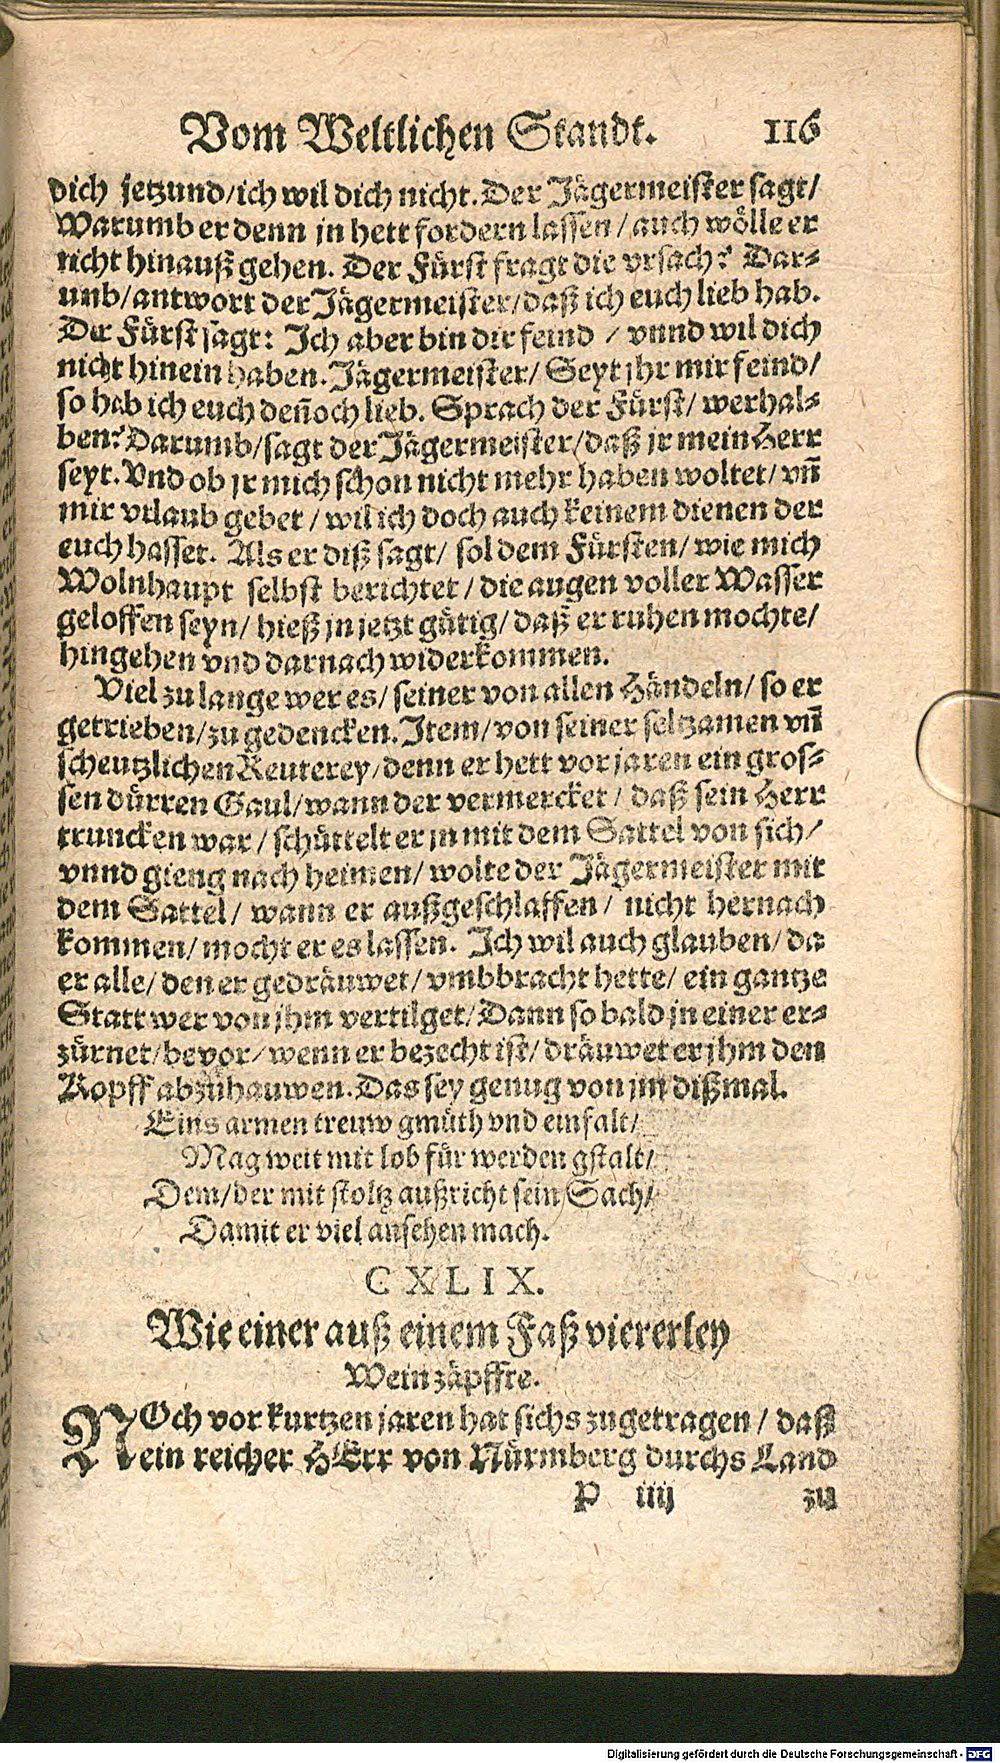 Vom Weltlichen Standt. 116
dich jetzund/ich wil dich nicht. Der Jägermeister sagt/
Warumb er denn jn hett fordern lassen/auch wölle er
nicht hinauß gehen. Der Fürst fragt die vrsach? Dar-
umb/antwort der Jägermeister/daß ich euch lieb hab.
Der Fürst sagt: Ich aber bin dir feind / vnnd wil dich
nicht hinein haben. Jägermeister/ Seyt jhr mir feind/
so hab ich euch deñoch lieb. Sprach der Fürst/ werhal-
ben? Darumb/sagt der Jägermeister/daß jr mein Herr
seyt. Vnd ob jr mich schon nicht mehr haben woltet/ vñ
mir vrlaub gebet / wil ich doch auch keinem dienen der
euch hasset. Als er diß sagt/ sol dem Fürsten/ wie mich
Wolnhaupt selbst berichtet / die augen voller Wasser
geloffen seyn/ hieß jn jetzt gütig/ daß er ruhen mochte/
hingehen vnd darnach widerkommen.
Viel zu lange wer es/ seiner von allen Händeln/ so er
getrieben/zu gedencken. Item/von seiner seltzamen vñ
scheutzlichen Reuterey/denn er hett vor jaren ein gros-
sen dürren Gaul/wann der vermercket / daß sein Herr
truncken war / schüttelt er jn mit dem Sattel von sich/
vnnd gieng nach heimen/ wolte der Jägermeister mit
dem Sattel/ wann er außgeschlaffen/ nicht hernach
kommen/ mocht er es lassen. Ich wil auch glauben/ da
er alle/ den er gedräuwet/ vmbbracht hette/ ein gantze
Statt wer von jhm vertilget/ Dann so bald jn einer er-
zürnet/bevor/wenn er bezecht ist/ dräuwet er jhm den
Kopff abzuhauwen. Das sey genug von jm dißmal.
Eins armen treuw gmüth vnd einfalt/
Mag weit mit lob für werden gstalt/
Dem/der mit stoltz außricht sein Sach/
Damit er viel ansehen mach.
CXLIX.
Wie einer auß einem Faß viererley
Wein zäpffte.
NOch vor kurtzen jaren hat sichs zugetragen / daß
ein reicher HErr von Nürmberg durchs Land
P iiij zu
Digitalisierung gefördert durch die Deutsche Forschungsgemeinschaft - DFG